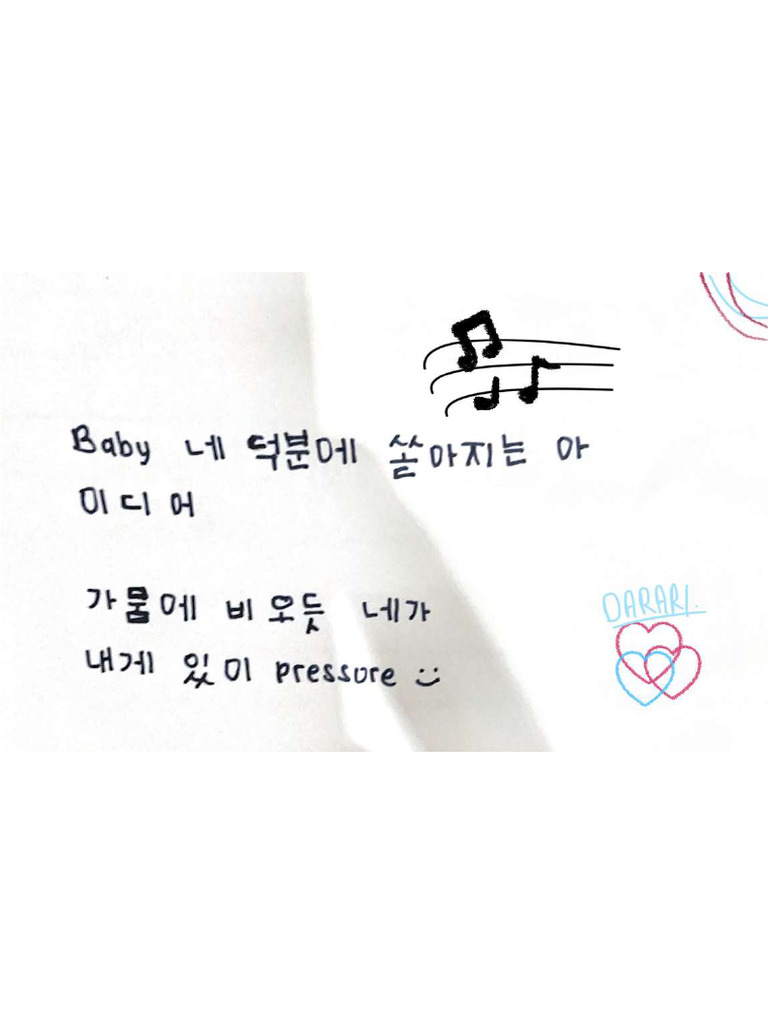 Baby 네 덕분에 쏟아지는 아
이디어
가뭄에 비 오듯 네가
내게 있이 pressure :)
DARARI.